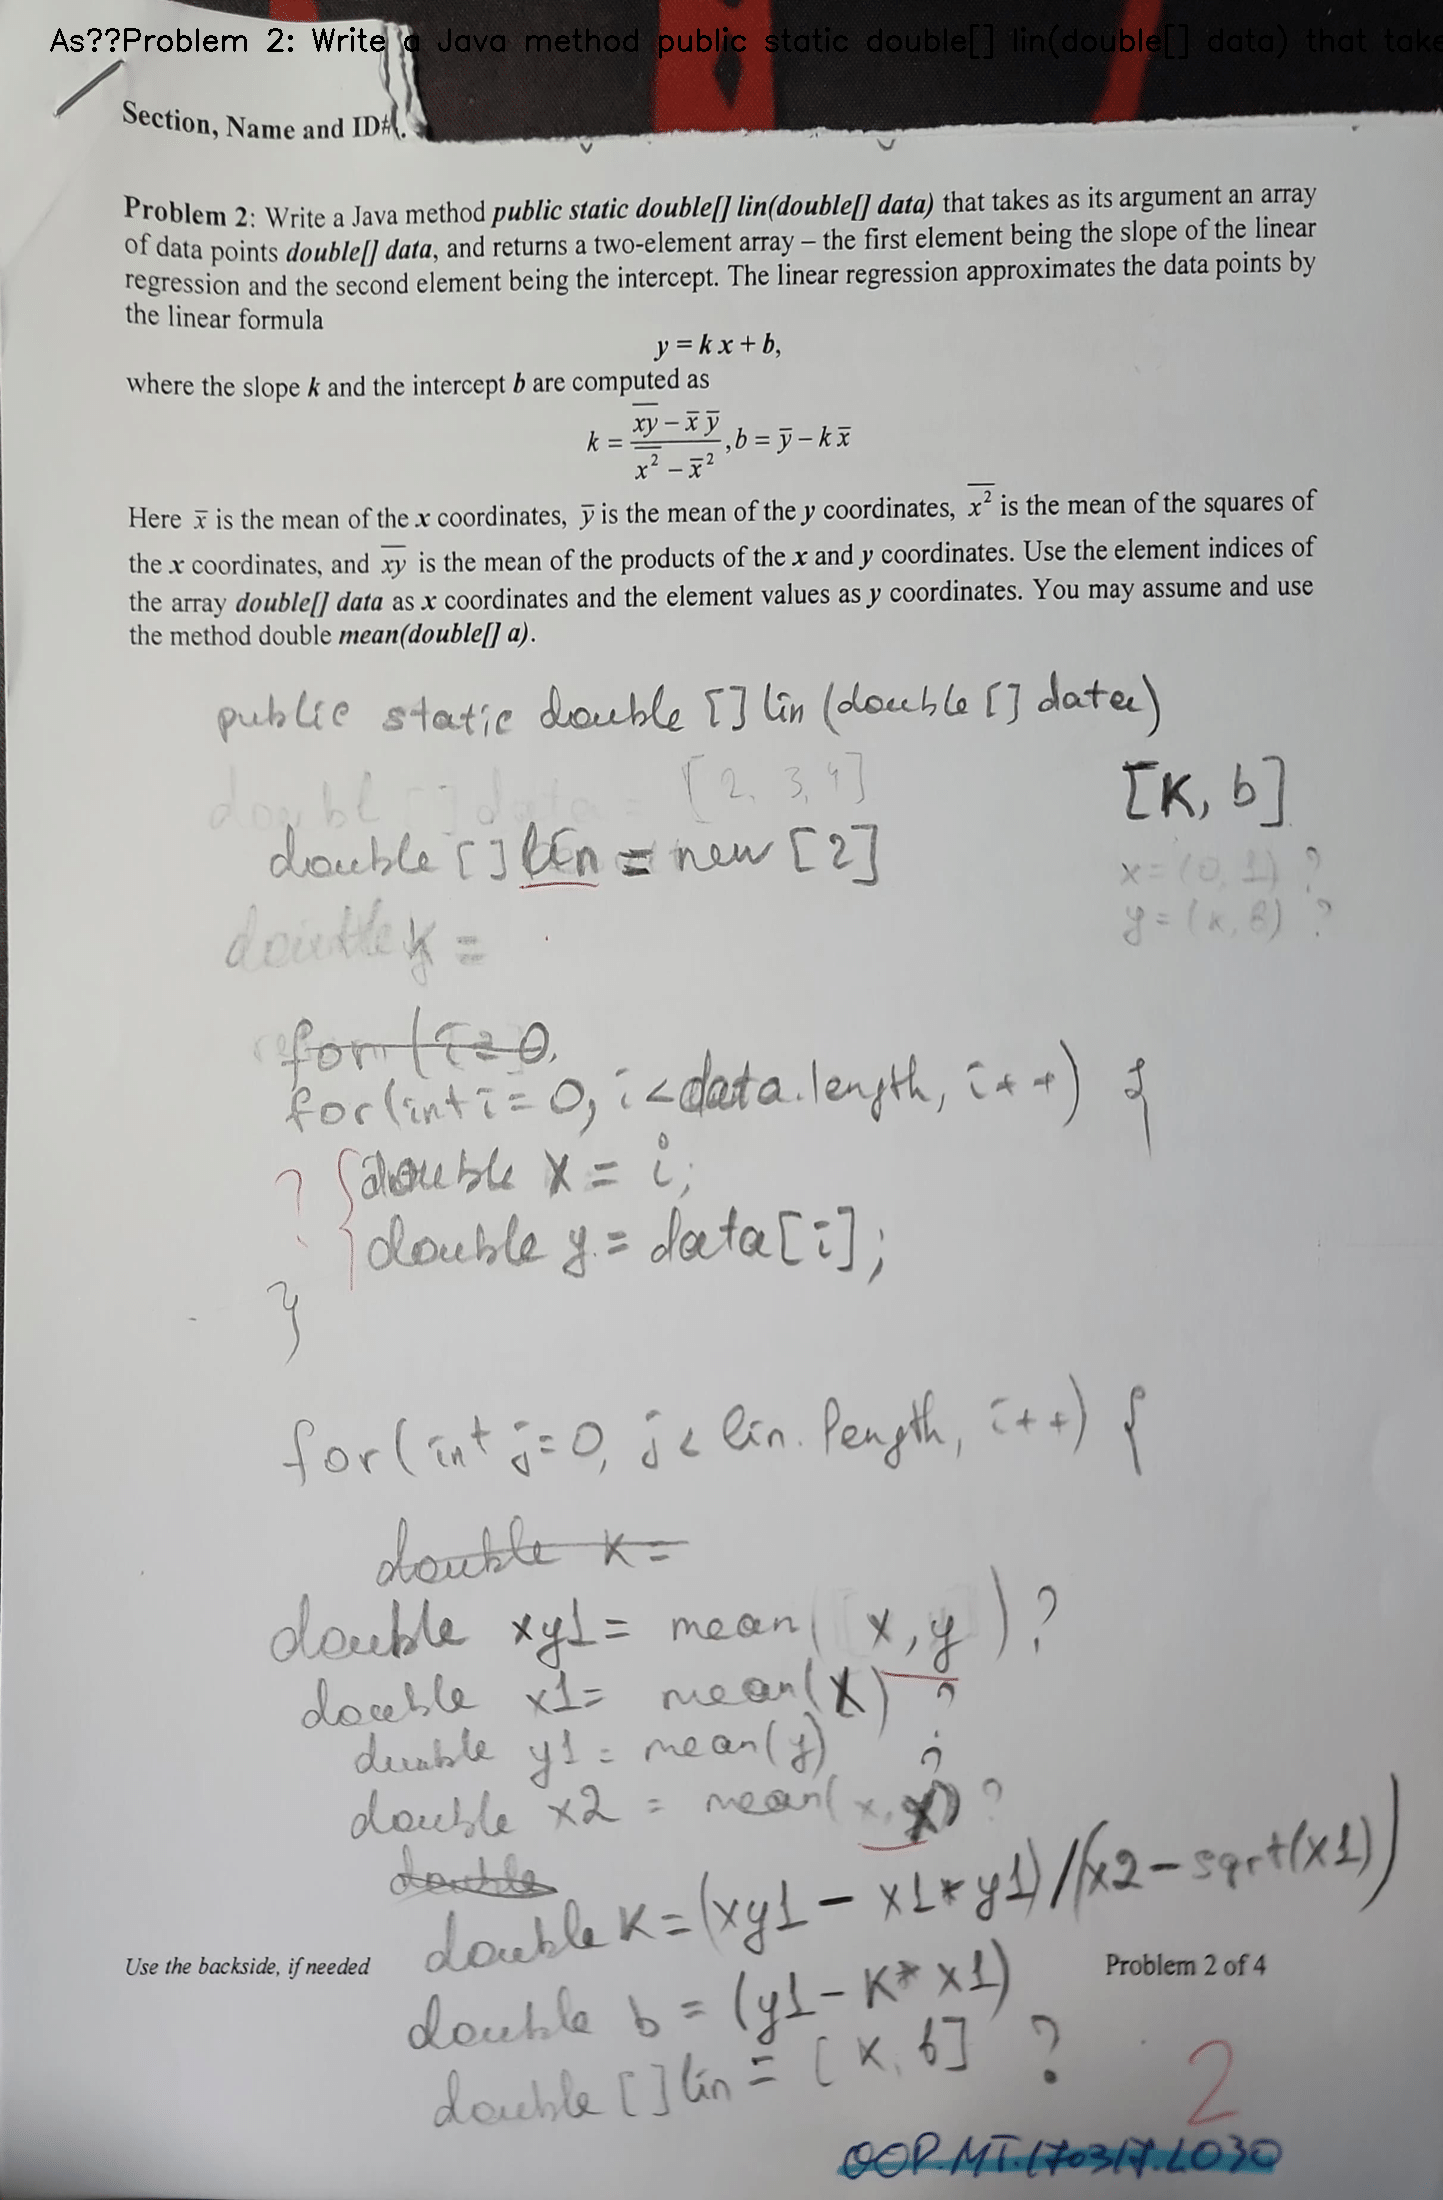 As??Problem 2: Write a Java method public static double[] lin(double[] data) that take
Section, Name and ID#
Problem 2: Write a Java method public static double[] lin(double[] data) that takes as its argument an array
of data points double[] data, and returns a two-element array – the first element being the slope of the linear
regression and the second element being the intercept. The linear regression approximates the data points by
the linear formula
y = k x + b,
where the slope k and the intercept b are computed as
k = (\overline{xy} − x̄ ȳ) / (\overline{x²} − x̄²), b = ȳ − k x̄
Here x̄ is the mean of the x coordinates, ȳ is the mean of the y coordinates, \overline{x²} is the mean of the squares of
the x coordinates, and \overline{xy} is the mean of the products of the x and y coordinates. Use the element indices of
the array double[] data as x coordinates and the element values as y coordinates. You may assume and use
the method double mean(double[] a).
public static double [] lin (double [] data)
doubl [] data = [2, 3, 4]
[K, b]
double [] lin = new [2]
x = (0, 1) ?
y = (k, B) ?
double k =
for (i = 0,
for (int i = 0, i < data.length, i++) {
? double x = i;
double y = data[i];
}
for (int j = 0, j < lin. length, i++) {
double k =
double xy1 = mean( x, y ) ?
double x1 = mean(x) ?
double y1 = mean(y) ?
double x2 = mean(x, x) ?
double
double K = (xy1 − x1 * y1) / (x2 − sqrt(x1))
Use the backside, if needed
Problem 2 of 4
double b = (y1 − K * x1)
double [] lin = [K, b] ?
2
OOP.MT.170317.L030